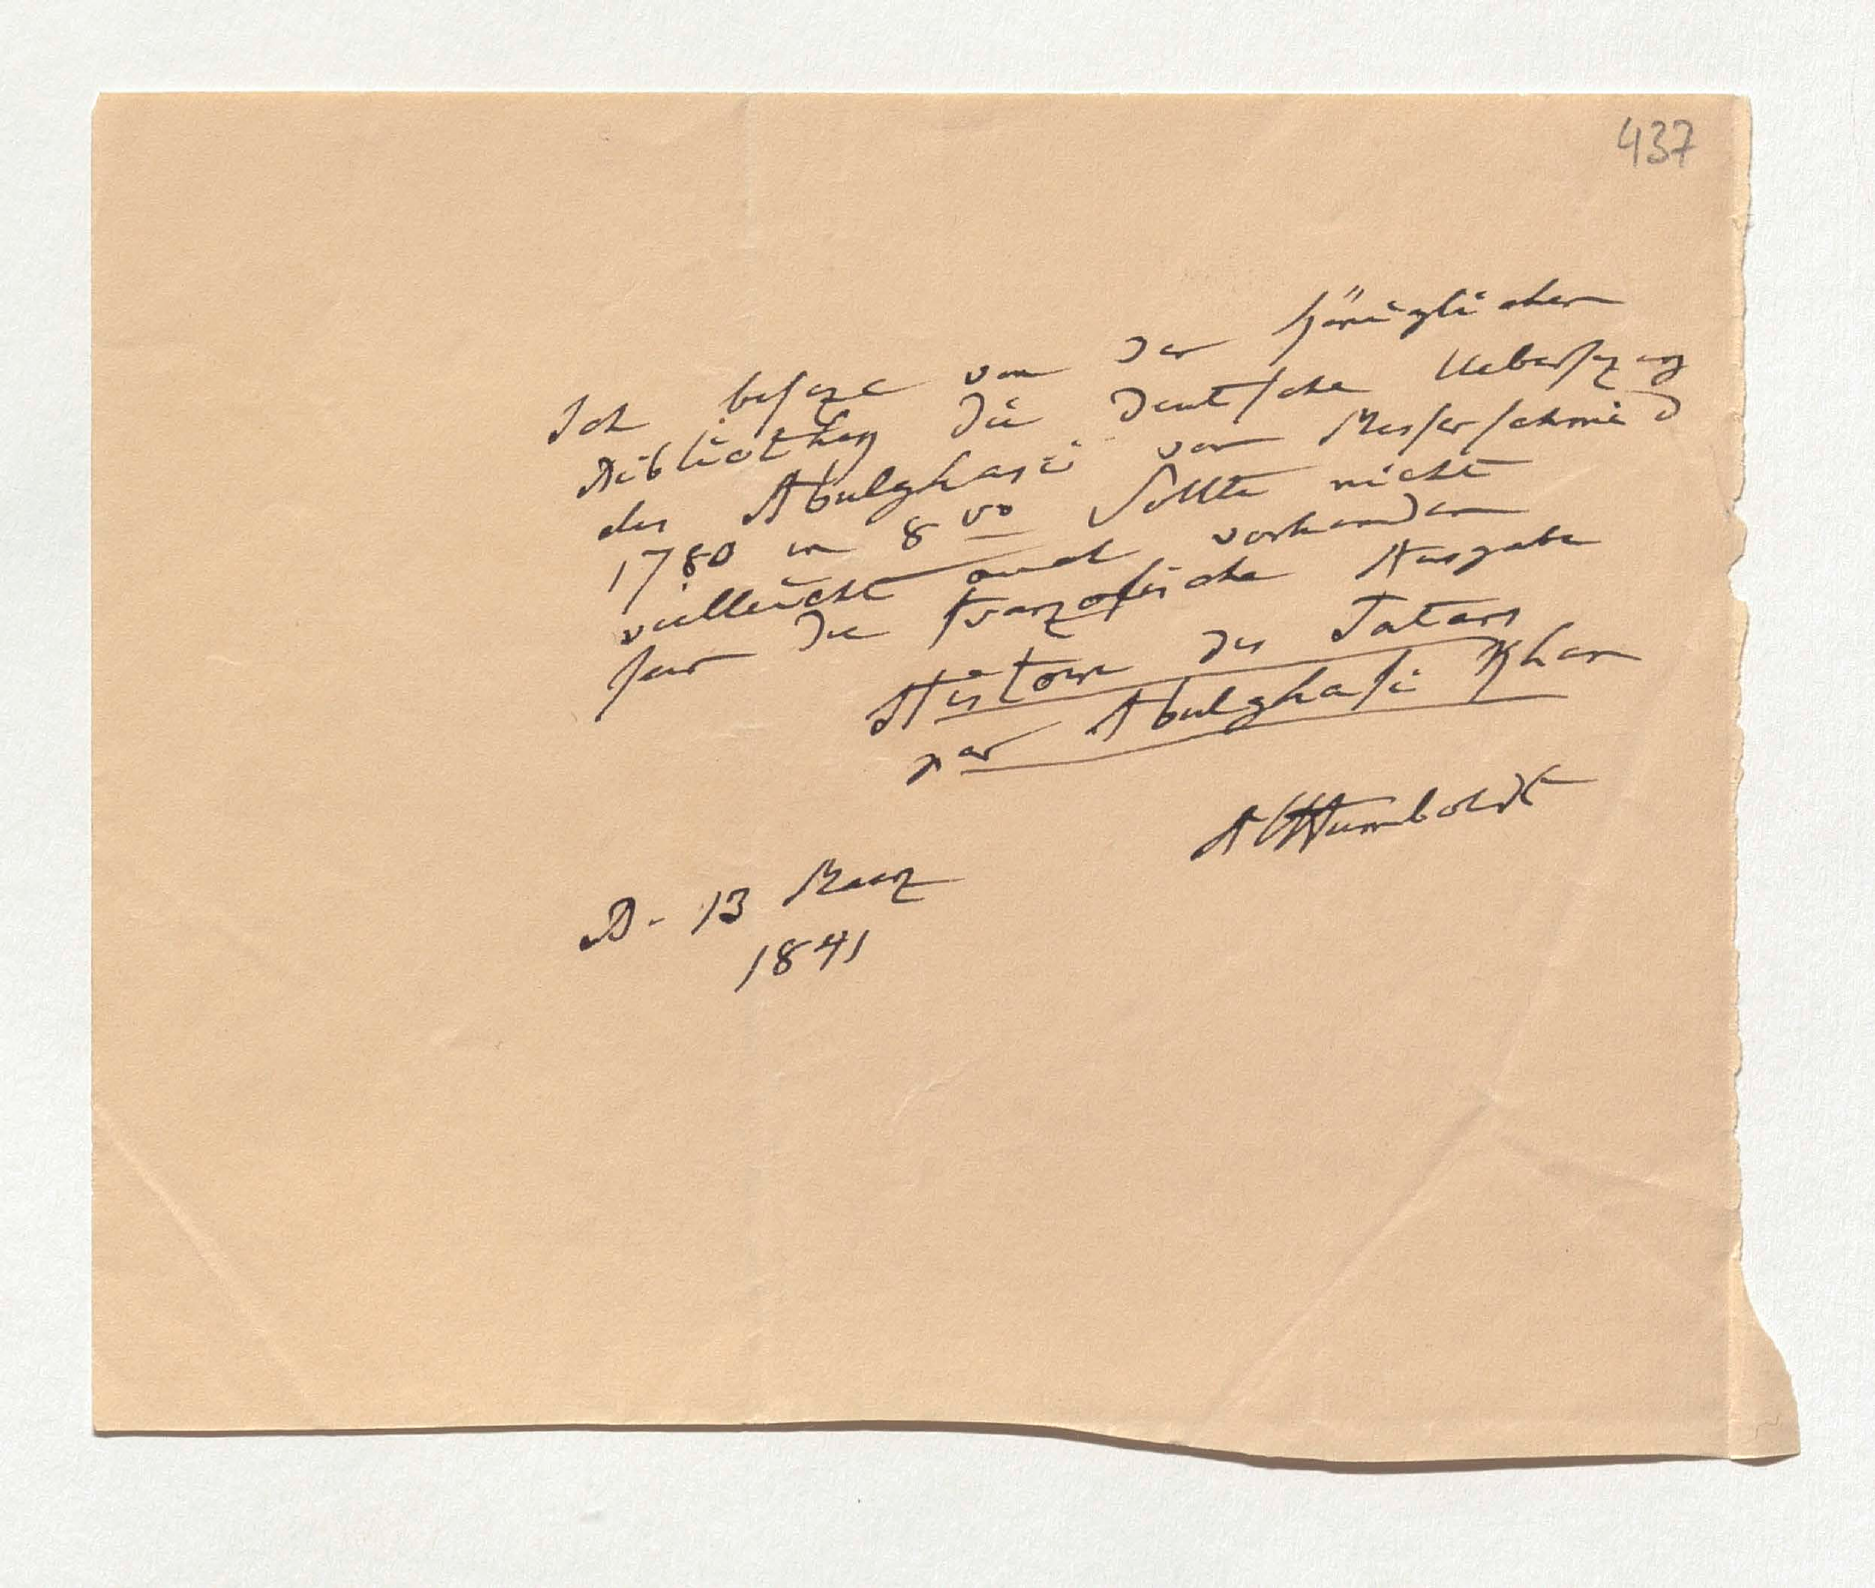 437
Ich besize von der königlichen
Bibliothek die deutsche Uebersezung
des Abulghasi von Messerschmid
1780 in 8vo Sollte nicht
vielleicht auch vorhanden
sein die französische Ausgabe
Histoire des Tatars
par Abulghasi Khan
AlHumboldt
B. 13 Maerz
1841